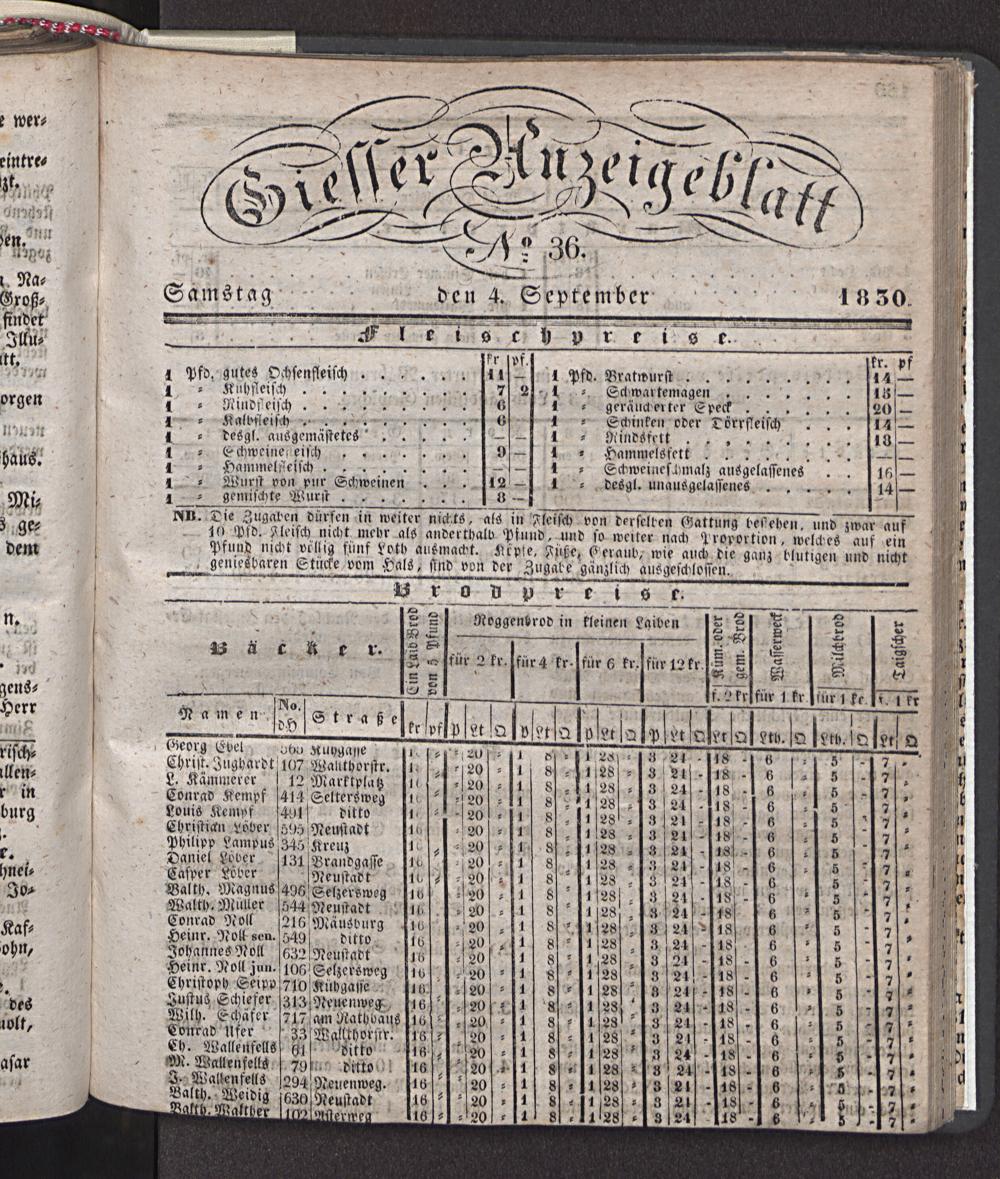 e wer⸗
eintre⸗
zt.
en.
Na⸗
Groß⸗
findet
Illu⸗
tt.
orgen
haus.
Mi⸗
ge⸗
dem
n.
gens⸗
Herr
risch⸗
allen⸗
in
burg
hnei⸗
Jo⸗
Kaf⸗
ohn,
des
molt,
asar
Giesser Anzeigeblatt
No 36.
Samstag den 4. September 1830.
Fleischpreise.
kr pf. kr. pf
1 Pfd. gutes Ochsenfleisch . . . . . . 11 — 1 Pfd. Bratwurst . . . . . . . 14 —
1 ⸗ Kuhfleisch . . . . . . . 7 2 1 ⸗ Schwartemagen . . . . . . 15 —
1 ⸗ Rindfleisch . . . . . . . 6 1 ⸗ geräucherter Speck . . . . . 20 —
1 ⸗ Kalbfleisch . . . . . . . 6 1 ⸗ Schinken oder Dörrfleisch . . . 14 —
1 ⸗ desgl. ausgemästetes . . . . — — 1 ⸗ Rindsfett . . . . . . . 18 —
1 ⸗ Schweinefleisch . . . . . . 9 — 1 ⸗ Hammelsfett . . . . . . — —
1 ⸗ Hammelfleisch . . . . . . — — 1 ⸗ Schweineschmalz ausgelassenes . . 16 —
1 ⸗ Wurst von pur Schweinen . . . 12 — 1 ⸗ desgl. unausgelassenes . . . . 14 —
1 ⸗ gemischte Wurst . . . . . . 8 —
NB. Die Zugaben dürfen in weiter nichts, als in Fleisch von derselben Gattung bestehen, und zwar auf
10 Pfd. Fleisch nicht mehr als anderthalb Pfund, und so weiter nach Proportion, welches auf ein
Pfund nicht völlig fünf Loth ausmacht. Köpfe, Füße, Geraub, wie auch die ganz blutigen und nicht
geniesbaren Stücke vom Hals, sind von der Zugabe gänzlich ausgeschlossen.
Brodpreise.
Bäcker. Ein Laib Brod von 5 Pfund Roggenbrod in kleinen Laiben Küm. oder gem. Brod Wasserweck Milchbrod Taigscher
für 2 kr. für 4 kr. für 6 kr. für 12 kr. f. 2 kr für 1 kr. für 1 kr. f. 1 kr
Namen No. d.H Straße kr pf P Lt Q P Lt Q P Lt Q P Lt Q Lt Q Lth. Q Lth. Q Lt Q
Georg Ebel Kuhgasse ⸗ ⸗ 20 ⸗ 1 8 ⸗ 1 28 ⸗ 3 24 - 18 - 6 5 - 7 ⸗
Christ. Jughardt 107 Wallthorstr. 16 ⸗ ⸗ 20 - 1 8 ⸗ 1 28 ⸗ 3 24 - 18 - 6 5 - 7 ⸗
L. Kämmerer 12 Marktplatz 16 ⸗ ⸗ 20 - 1 8 ⸗ 1 28 ⸗ 3 24 - 18 - 6 5 - 7 ⸗
Conrad Kempf 414 Seltersweg 16 ⸗ ⸗ 20 - 1 8 ⸗ 1 28 ⸗ 3 24 - 18 - 6 5 - 7 ⸗
Louis Kempf 491 ditto 16 ⸗ ⸗ 20 - 1 8 ⸗ 1 28 ⸗ 3 24 - 18 - 6 5 - 7 ⸗
Christian Löber 595 Neustadt 16 ⸗ ⸗ 20 - 1 8 ⸗ 1 28 ⸗ 3 24 - 18 - 6 5 - 7 ⸗
Philipp Lampus 345 Kreuz 16 ⸗ ⸗ 20 - 1 8 ⸗ 1 28 ⸗ 3 24 - 18 - 6 5 - 7 ⸗
Daniel Löber 131 Brandgasse 16 ⸗ ⸗ 20 - 1 8 ⸗ 1 28 ⸗ 3 24 - 18 - 6 5 - 7 ⸗
Casper Löber Neustadt 16 ⸗ ⸗ 20 - 1 8 ⸗ 1 28 ⸗ 3 24 - 18 - 6 5 - 7 ⸗
Balth. Magnus 496 Selzersweg 16 ⸗ ⸗ 20 - 1 8 ⸗ 1 28 ⸗ 3 24 - 18 - 6 5 - 7 ⸗
Walth. Müller 544 Neustadt 16 ⸗ ⸗ 20 - 1 8 ⸗ 1 28 ⸗ 3 24 - 18 - 6 5 - 7 ⸗
Conrad Noll 216 Mäusburg 16 ⸗ ⸗ 20 - 1 8 ⸗ 1 28 ⸗ 3 24 - 18 - 6 5 - 7 ⸗
Heinr. Noll sen. 549 ditto 16 ⸗ ⸗ 20 - 1 8 ⸗ 1 28 ⸗ 3 24 - 18 - 6 5 - 7 ⸗
Johannes Noll 632 Neustadt 16 ⸗ ⸗ 20 - 1 8 ⸗ 1 28 ⸗ 3 24 - 18 - 6 5 - 7 ⸗
Heinr. Noll jun. 106 Selzersweg 16 ⸗ ⸗ 20 - 1 8 ⸗ 1 28 ⸗ 3 24 - 18 - 6 5 - 7 ⸗
Christoph Seipp 710 Kuhgasse 16 ⸗ ⸗ 20 - 1 8 ⸗ 1 28 ⸗ 3 24 - 18 - 6 5 - 7 ⸗
Justus Schiefer 313 Neuenweg 16 ⸗ ⸗ 20 - 1 8 ⸗ 1 28 ⸗ 3 24 - 18 - 6 5 - 7 ⸗
Wilh. Schäfer 717 am Rathhaus 16 ⸗ ⸗ 20 - 1 8 ⸗ 1 28 ⸗ 3 24 - 18 - 6 5 - 7 ⸗
Conrad Ufer 33 Wallthorstr. 16 ⸗ ⸗ 20 - 1 8 ⸗ 1 28 ⸗ 3 24 - 18 - 6 5 - 7 ⸗
Ch. Wallenfells 61 ditto 16 ⸗ ⸗ 20 - 1 8 ⸗ 1 28 ⸗ 3 24 - 18 - 6 5 - 7 ⸗
M. Wallenfells 79 ditto 16 ⸗ ⸗ 20 - 1 8 ⸗ 1 28 ⸗ 3 24 - 18 - 6 5 - 7 ⸗
J. Wallenfells 294 Neuenweg. 16 ⸗ ⸗ 20 - 1 8 ⸗ 1 28 ⸗ 3 24 - 18 - 6 5 - 7 ⸗
Balth. Weidig 630 Neustadt 16 ⸗ ⸗ 20 - 1 8 ⸗ 1 28 ⸗ 3 24 - 18 - 6 5 - 7 ⸗
Balth. Walther 102 Asterweg 16 ⸗ ⸗ 20 - 1 8 ⸗ 1 28 ⸗ 3 24 - 18 - 6 5 - 7 ⸗